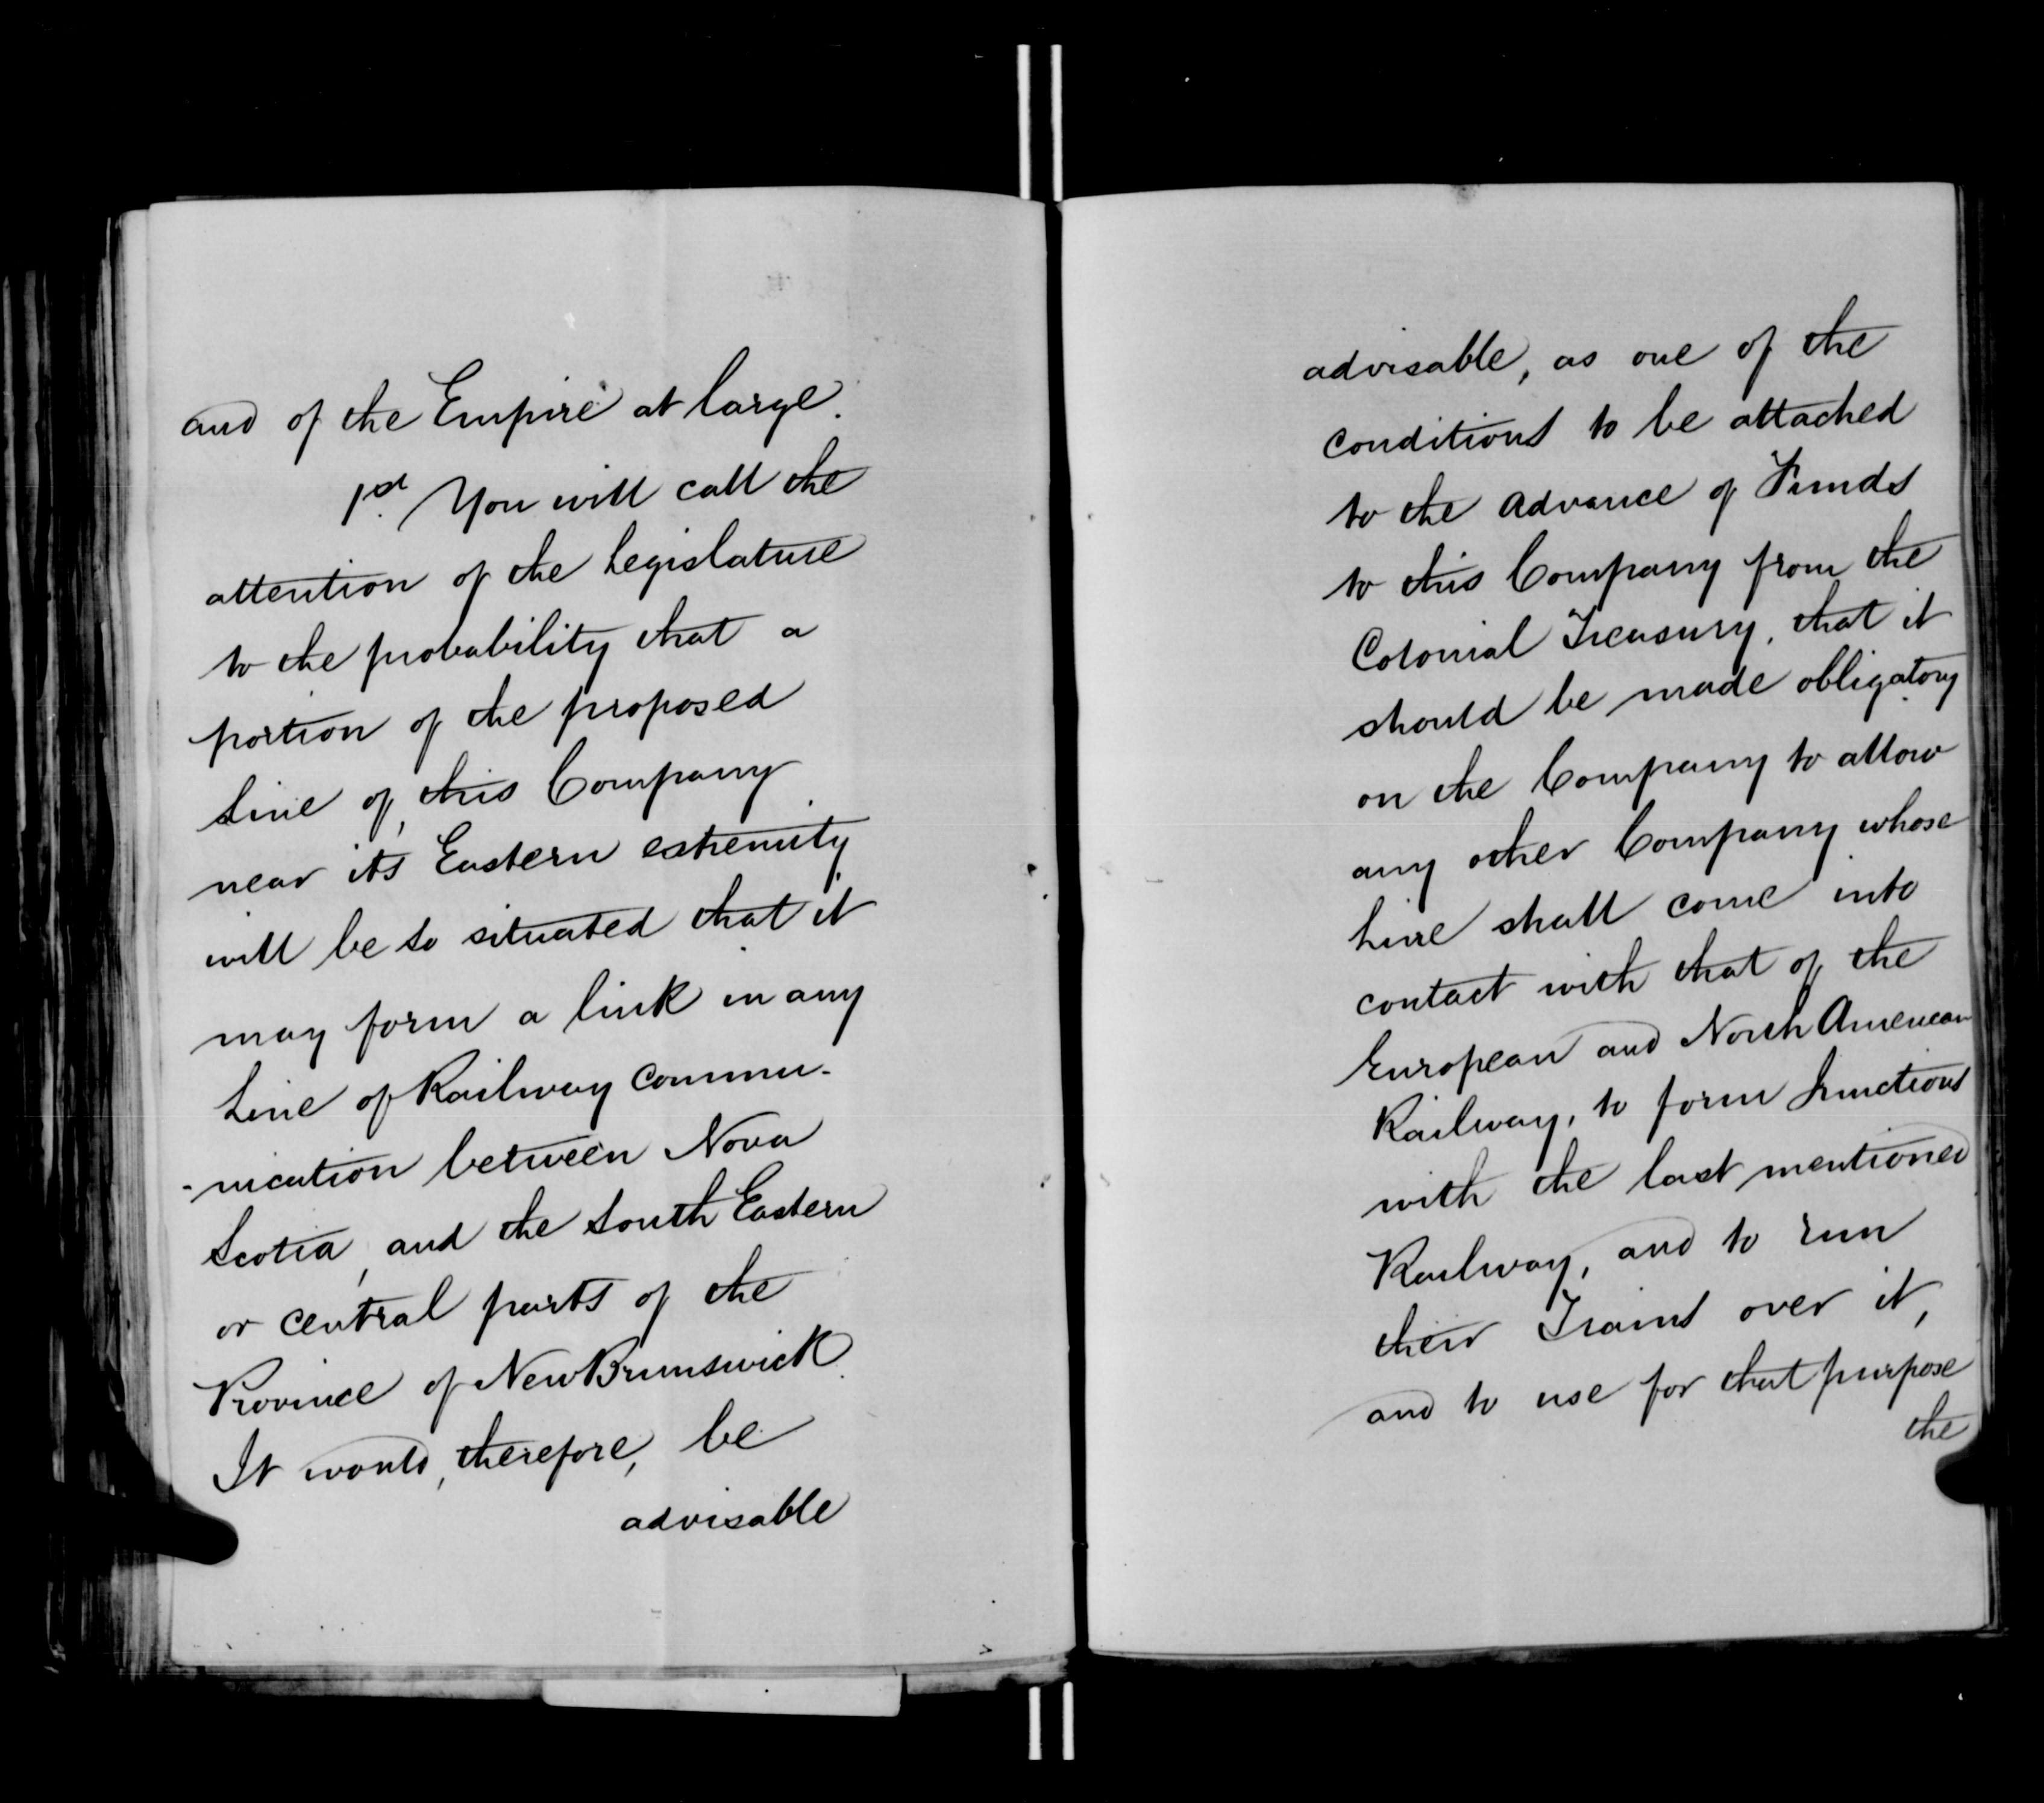 and of the Empire at large.
1st. You will call the
attention of the Legislature
to the probability that a
portion of the proposed
Line of this Company
near its Eastern extremity
will be so situated that it
may form a link in any
Line of Railway commu-
-nication between Nova
Scotia, and the South Eastern
or central parts of the
Province of New Brunswick.
It would, therefore, be
advisable
advisable, as one of the
conditions to be attached
to the advance of Funds
to this Company from the
Colonial Treasury, that it
should be made obligatory
on the Company to allow
any other Company whose
Line shall come into
contact with that of the
European and North American
Railway, to form Junctions
with the last mentioned
Railway, and to run
their Trains over it,
and to use for that purpose
the